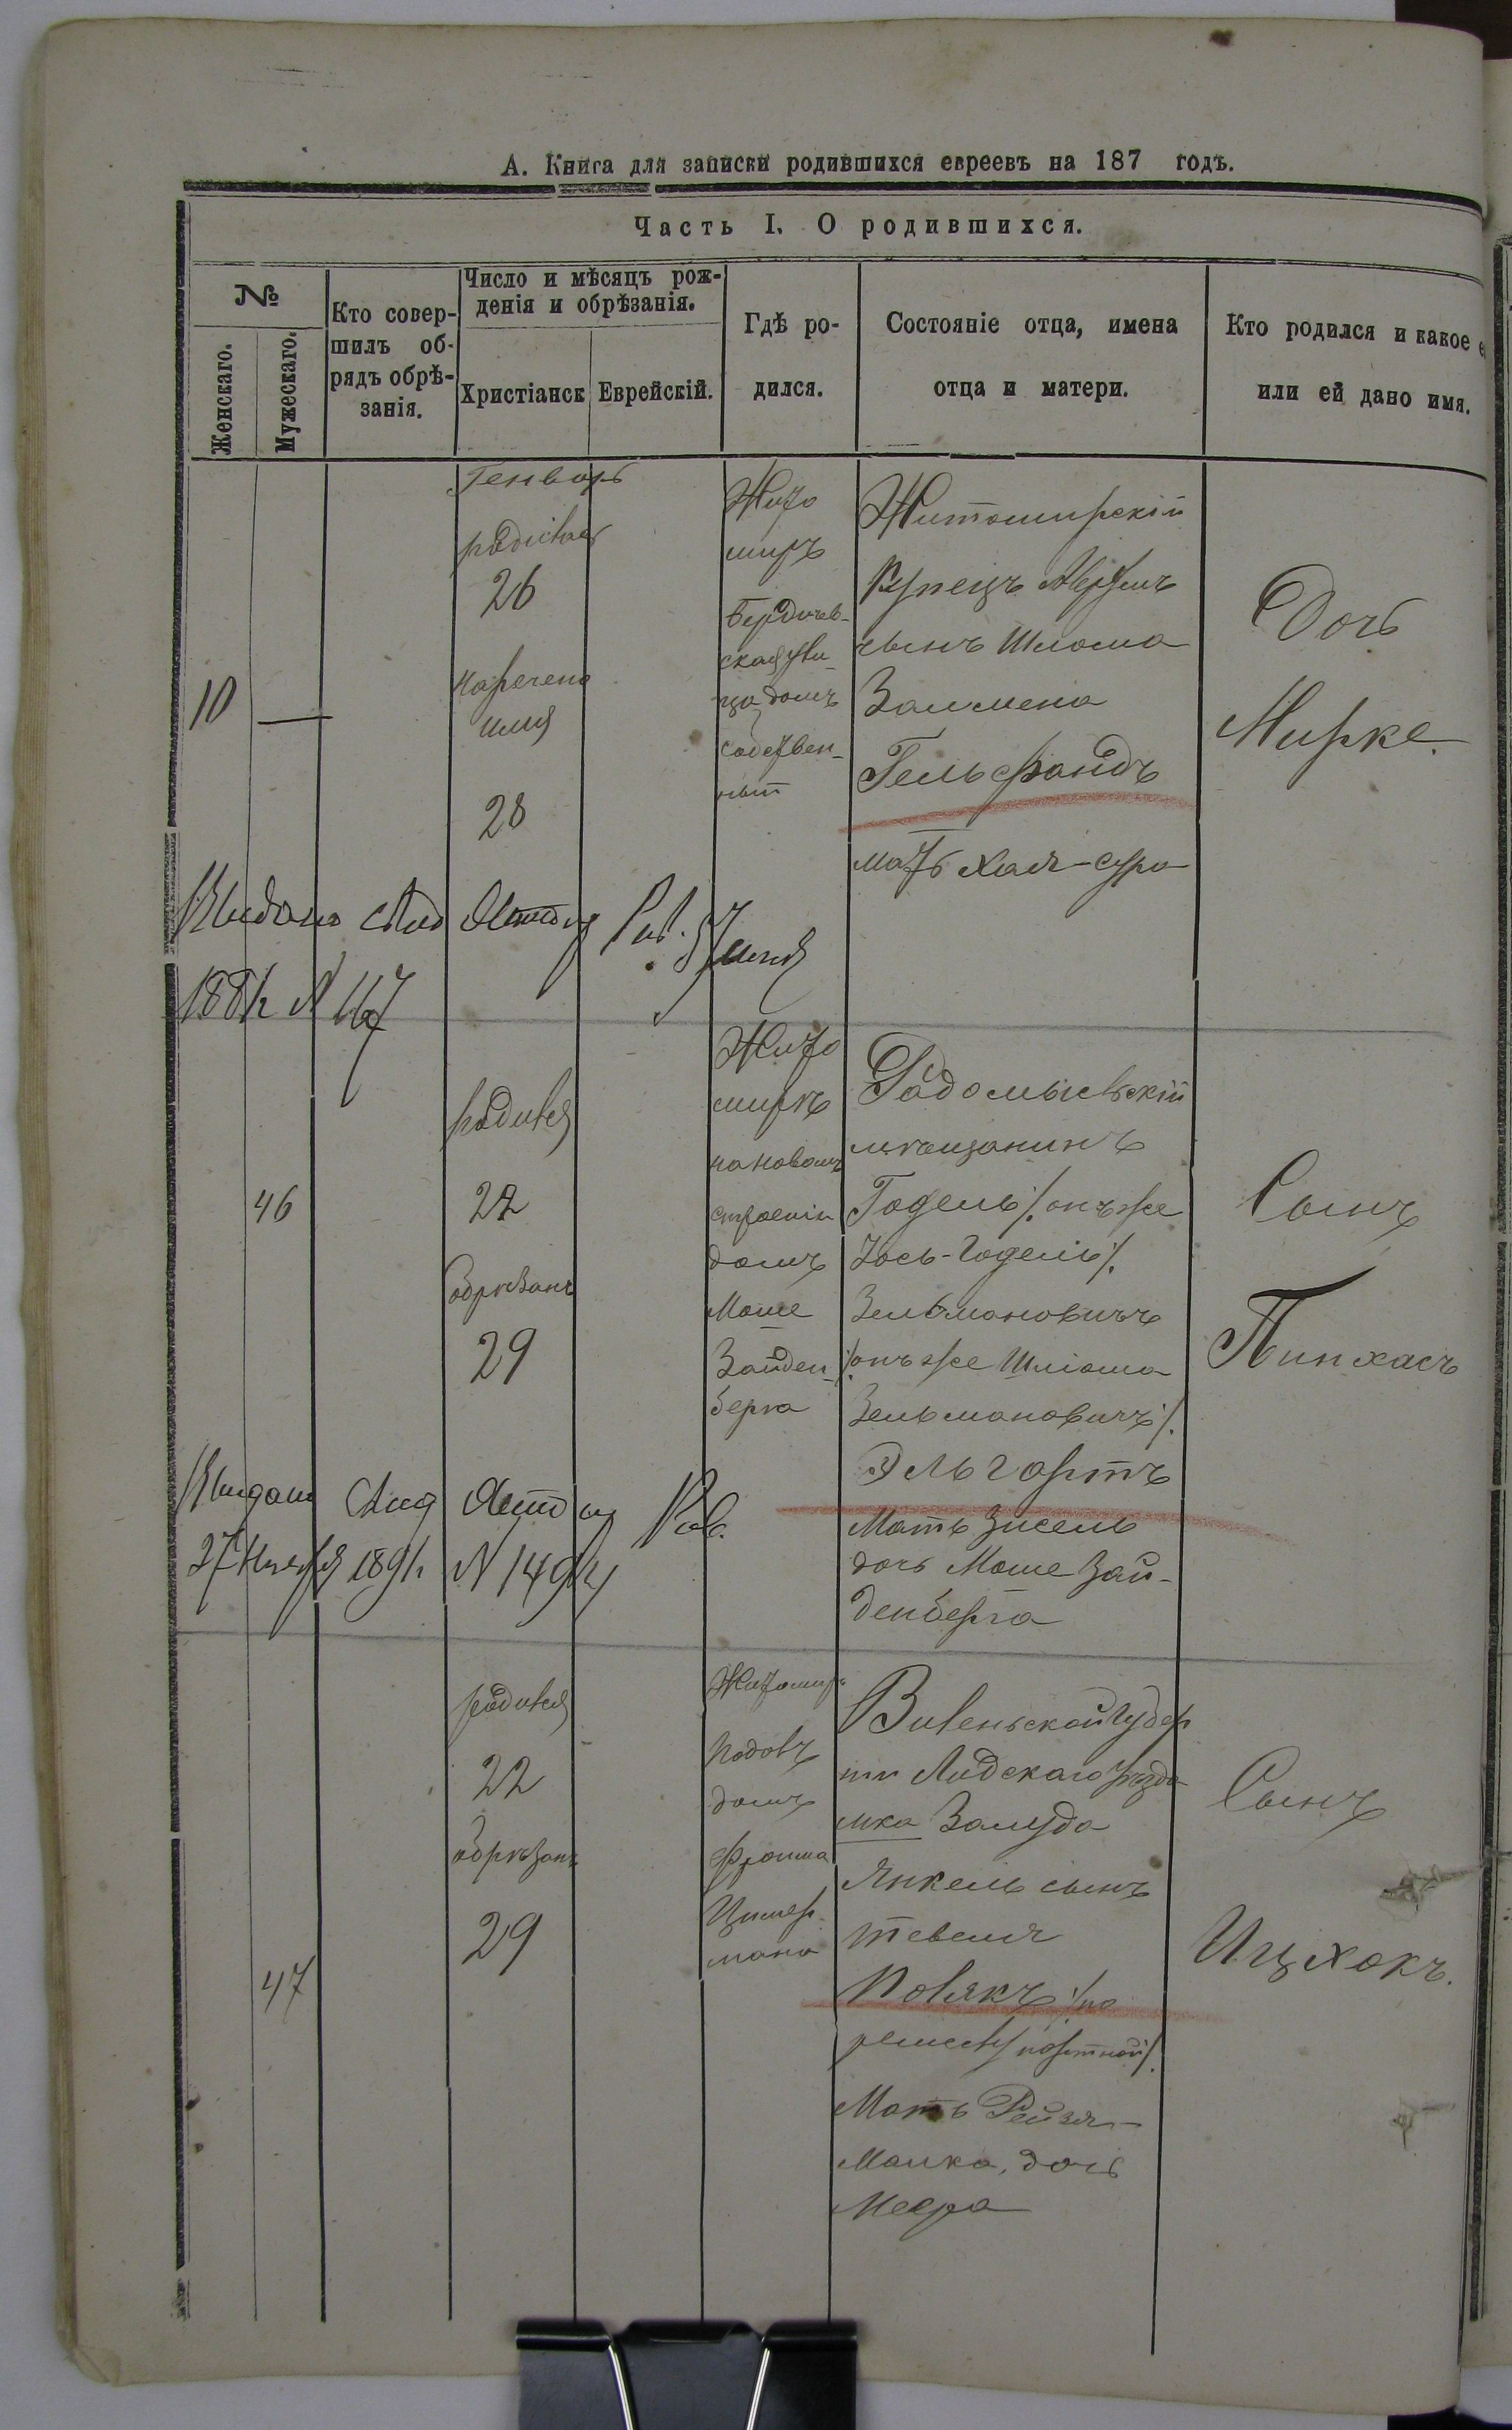 А. Книга для записки родившихся евреевъ на 187 годъ.
Часть I. О родившихся.
№
Женскаго.
Мужескаго.
Кто совер-
шилъ об-
рядъ обрѣ-
занія.
Число и мѣсяцъ рож-
денія и обрѣзанія.
Христіанск
Еврейскій.
Гдѣ ро-
дился.
Состояніе отца, имена
отца и матери.
Кто родился и какое
или ей дано имя.
10
—
Генварь
родилась
26
наречено
имя
28
Жито
миръ
Бердичев-
ская ули-
ца домъ
собствен-
ный
Житомирскій
Купецъ Аврумъ
сынъ Шлома
Залмена
Гельфандъ
мать Хая-Сура
Дочь
Мирке.
46
родился
22
обрѣзанъ
29
Жито
миръ
на новомъ
строеніи
домъ
Моше
Зайден-
берга
Радомысльскій
мѣщанинъ
Годель /. онъ же
Іось-Годель /.
Зельмановичъ
/. онъ же Шліома
Зельмановичъ /.
Эльгортъ
Мать Зисель
дочь Моше Зай-
денберга
Сынъ
Пинхасъ
Выдано
27 Ноября 189 г. №
47
родился
22
обрѣзанъ
29
Житомиръ
Подолъ
домъ
Фроима
Цимер-
мана
Виленьской Губер
ніи Лидскаго уѣзда
мка Залуда
Янкель сынъ
Тевеля
Полякъ /. по
ремеслу портной /.
Мать Рейзя-
Малка, дочь
Меера
Сынъ
Ицхокъ.